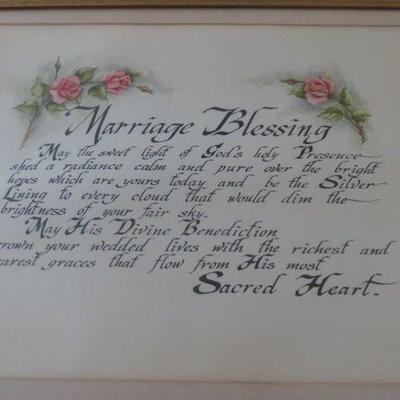 Marriage Blessing
May the sweet light of God's holy Presence
shed a radiance calm and pure over the bright
hopes which are yours today and be the Silver
Lining to every cloud that would dim the
brightness of your fair sky.
May His Divine Benediction
crown your wedded lives with the richest and
rarest graces that flow from His most
Sacred Heart.